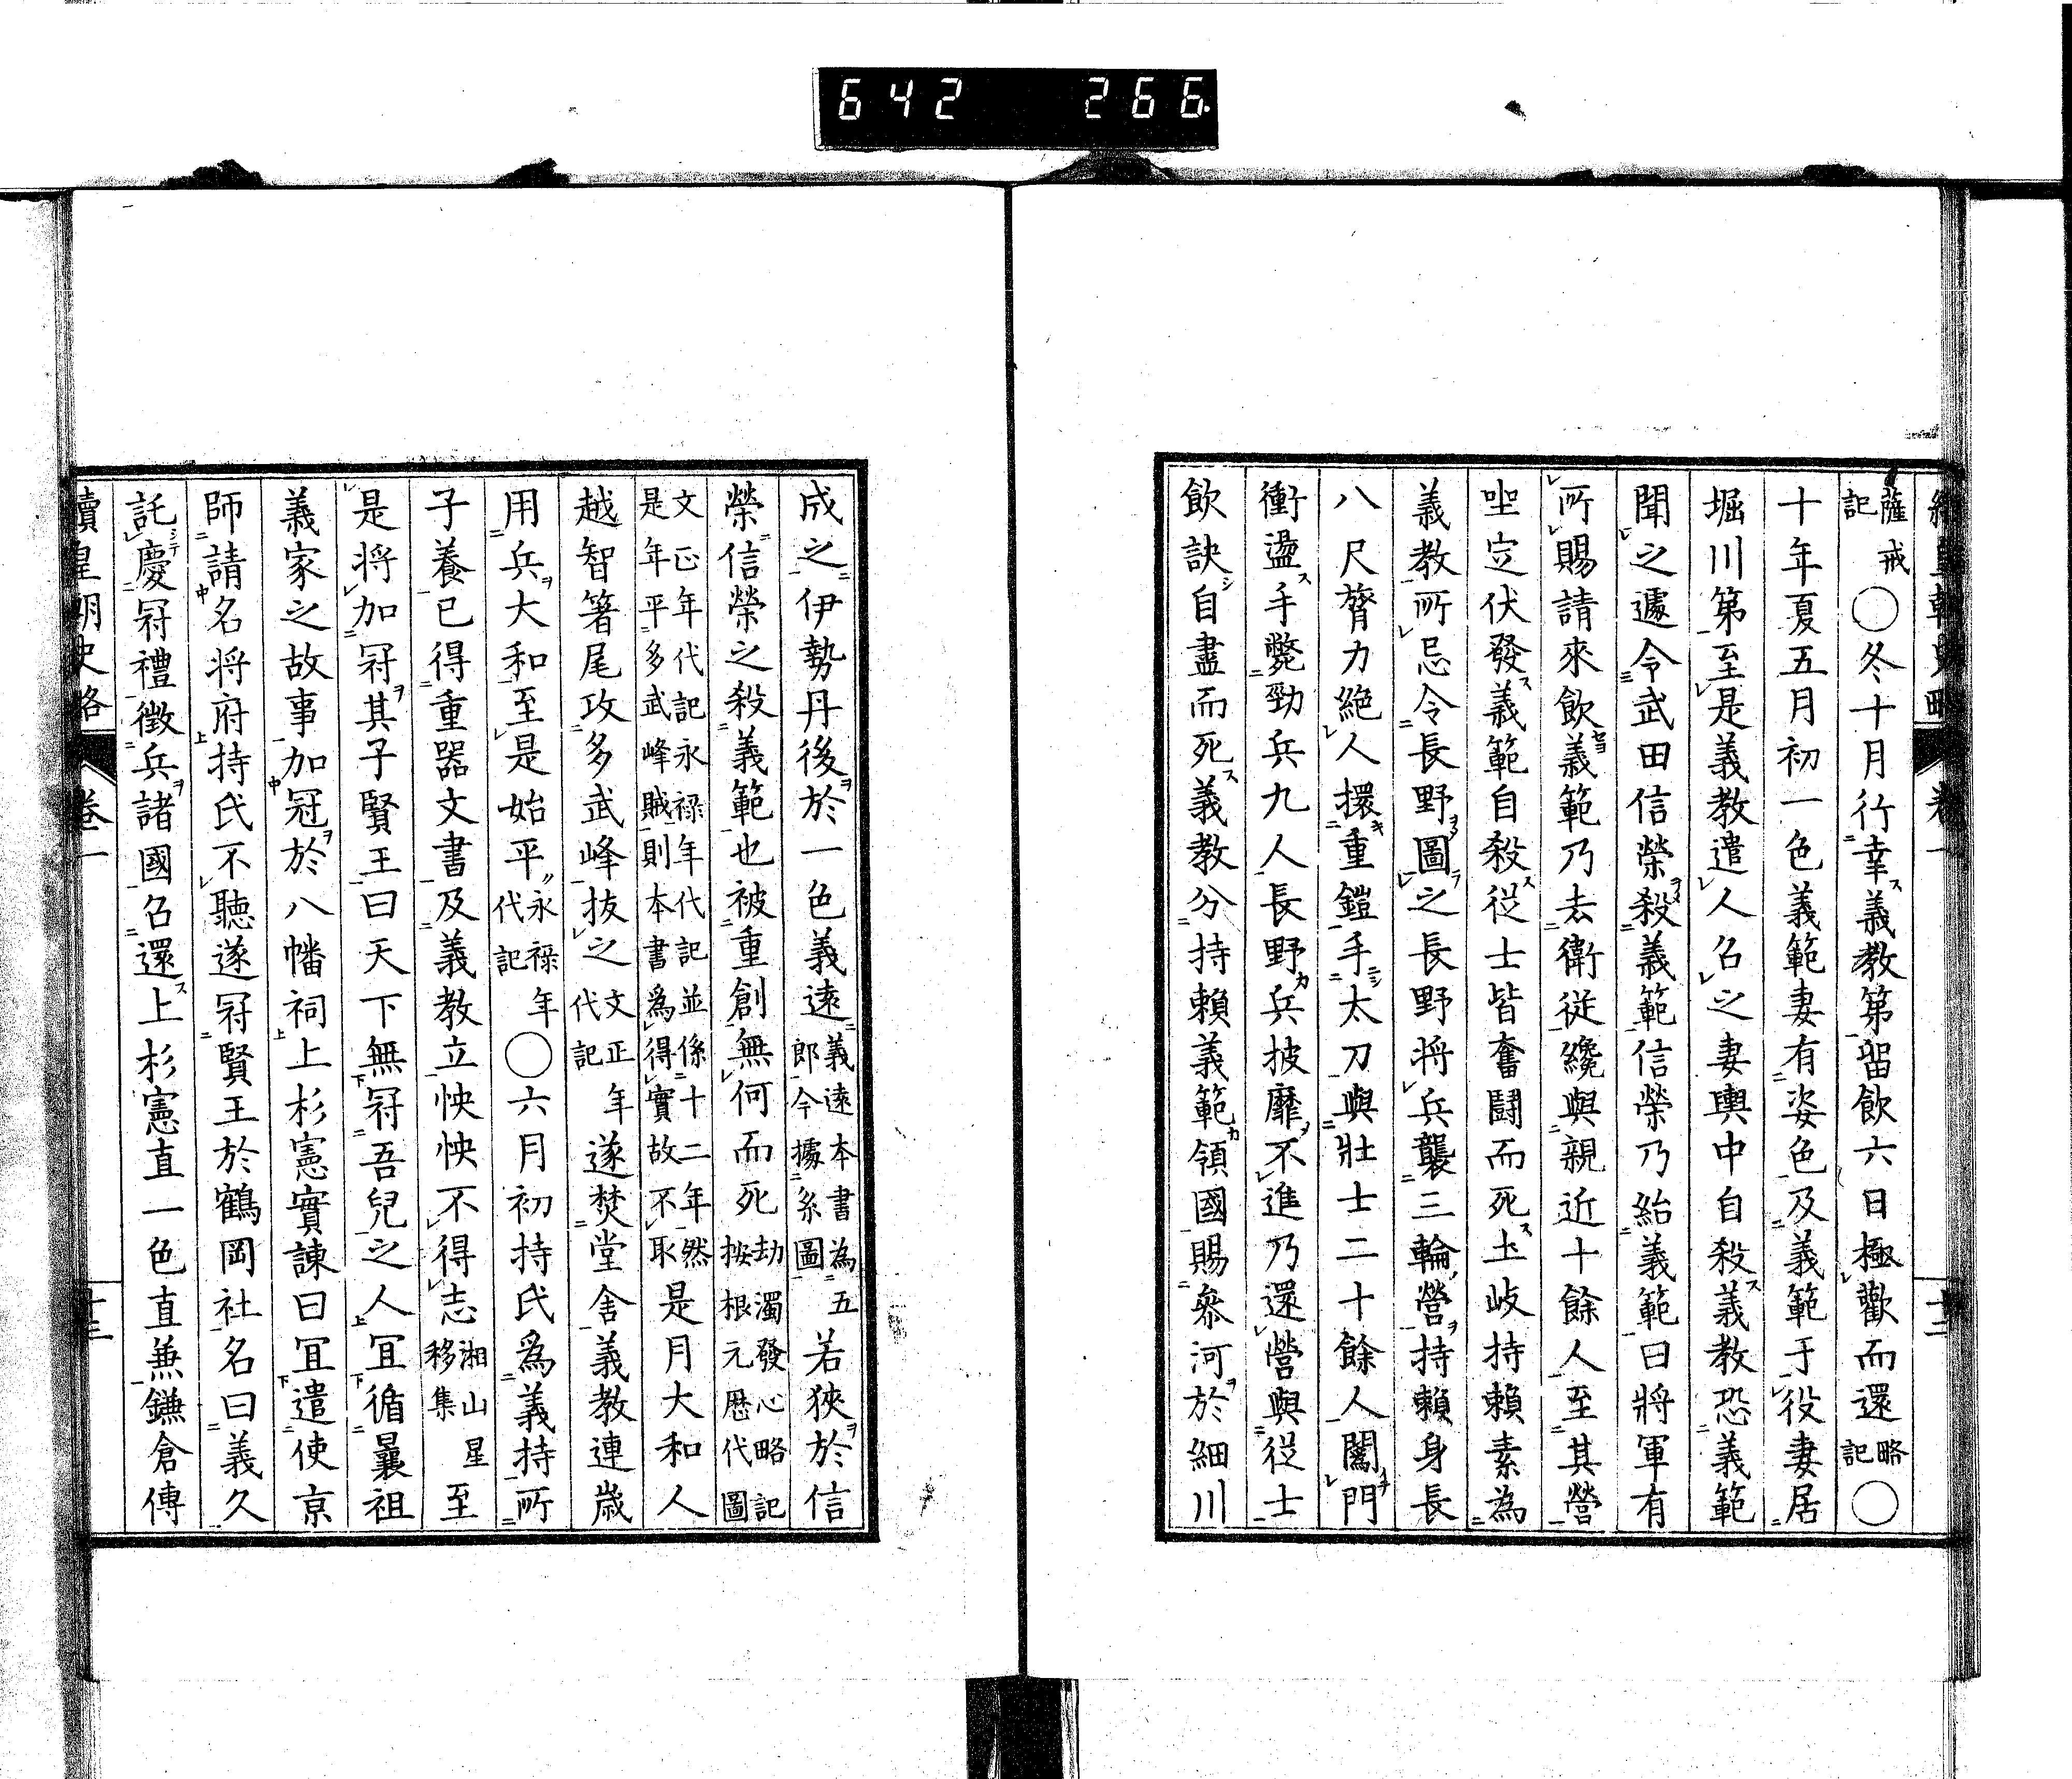 642 266
薩戒記○冬十月行幸義教第留飲六日極歡而還略記○
十年夏五月初一色義範妻有姿色及義範于役妻居
堀川第至是義教遣人召之妻輿中自殺義教恐義範
聞之遽令武田信榮殺義範信榮乃紿義範曰將軍有
所賜請來飲義範乃去衛従纔與親近十餘人至其營
坐定伏發義範自殺従士皆奮鬪而死土岐持賴素為
義教所忌令長野圖之長野將兵襲三輪營持賴身長
八尺膂力絶人擐重鎧手太刀與壯士二十餘人闖門
衝盪手斃勁兵九人長野兵披靡不進乃還營與従士
飲訣自盡而死義教分持賴義範領國賜參河於細川
成之伊勢丹後於一色義遠義遠本書為五郎今據系圖若狹於信
榮信榮之殺義範也被重創無何而死劫濁發心略記按根元歴代圖
文正年代記永禄年代記並係十二年然是年平多武峰賊則本書為得實故不取是月大和人
越智箸尾攻多武峰拔之文正年代記遂焚堂舍義教連歳
用兵大和至是始平永禄年代記○六月初持氏為義持所
子養已得重器文書及義教立怏怏不得志湘山星移集至
是将加冠其子賢王曰天下無冠吾兒之人宜循曩祖
義家之故事加冠於八幡祠上杉憲實諌曰宜遣使京
師請名将府持氏不聽遂冠賢王於鶴岡社名曰義久
託慶冠禮徴兵諸國召還上杉憲直一色直兼鎌倉傳
續皇朝史略 卷一 十三